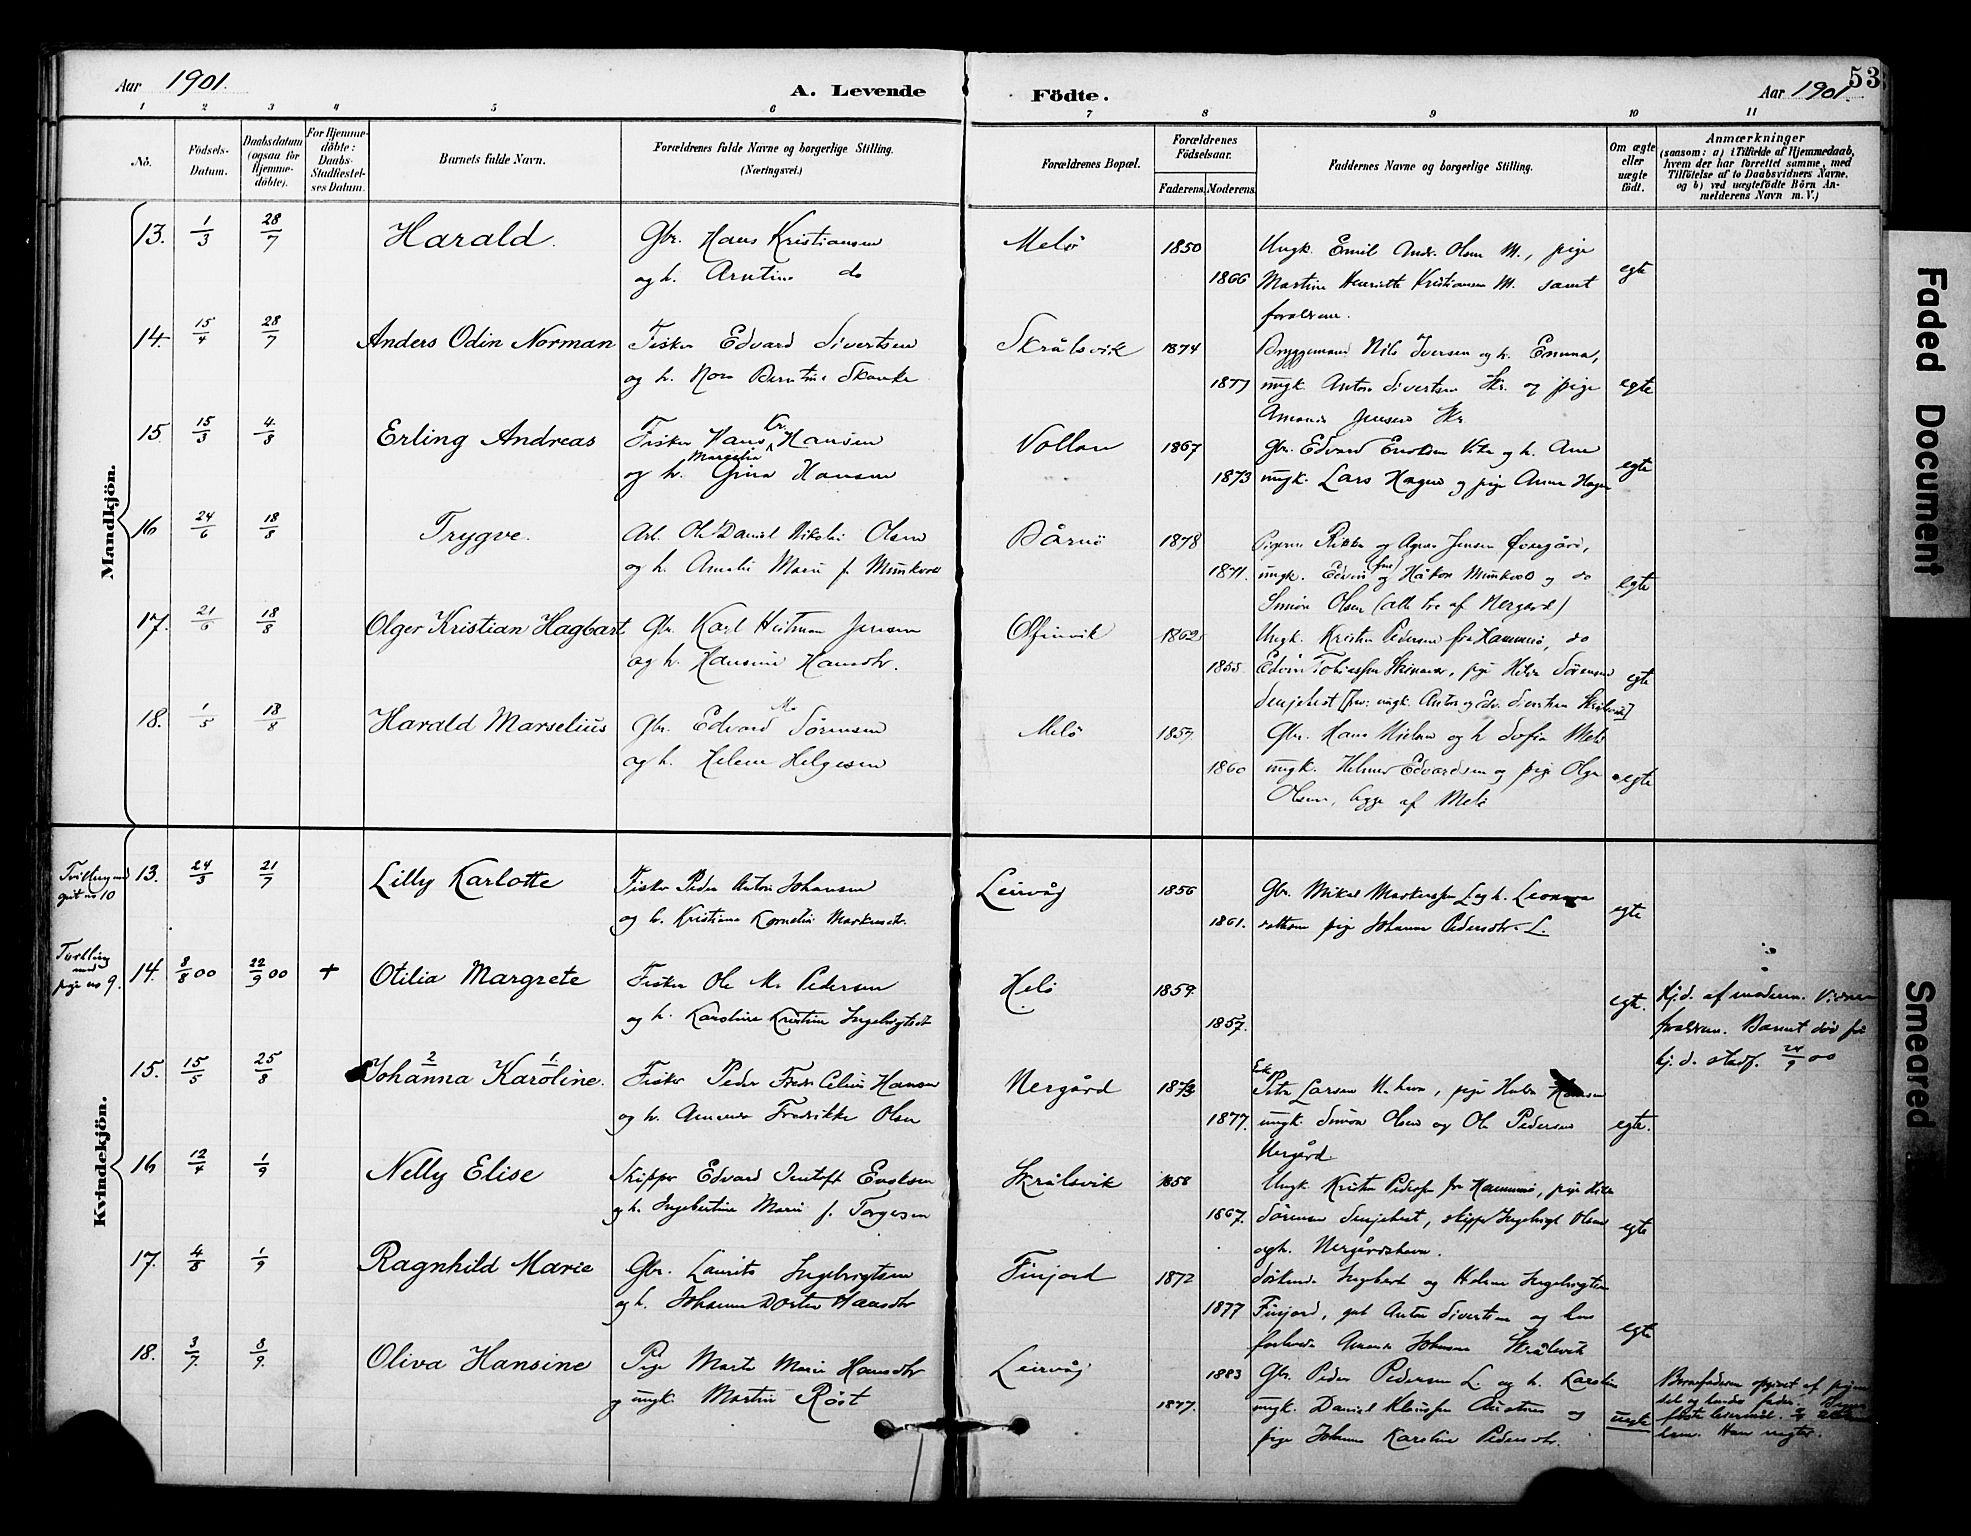 Aar 1901.
A. Levende Födte.
Aar 1901.
53
1 2 3 4 5 6 7 8 9 10 11
No.
Födsels-Datum.
Daabsdatum (ogsaa for Hjemme-döbte).
For Hjemme-döbte: Daabs-Stadfæstel-ses Datum.
Barnets fulde Navn.
Forældrenes fulde Navne og borgerlige Stilling. (Næringsvei.)
Forældrenes Bopæl.
Forældrenes Födselsaar.
Faderens. Moderens.
Faddernes Navne og borgerlige Stilling.
Om ægte eller uægte födt.
Anmærkninger
(saasom: a) i Tilfælde af Hjemmedaab, hvem der har forrettet samme, med Tilföielse af to Daabsvidners Navne. og b) ved uægtefödte Börn An-melderens Navn m. V.)
Mandkjön.
13. 1/3 28/7 Harald. Gbr. Hans Kristiansen Melö 1850 Ungk. Emil Andr. Olsen M., pige
og h. Arntine do 1866 Martine Henriette Kristiansen M. samt egte
forældrene.
14. 15/4 28/7 Anders Odin Norman Fisker Edvard Sivertsen Skrålsvik 1874 Bryggemand Nils Iversen og h. Emma,
og h. Nora Berntine 1877 ungk. Anton Sivertsen Skr. og pige egte
Amanda Jensen Skr
15. 15/3 4/8 Erling Andreas Fisker Hans Kr. Hansen Vollan 1867 Gbr. Edvard og h. Ane
og h. Margelia Gina Hansen 1873 ungk. Lars Hagen og pige Anna Hagen egte
16 24/6 18/8 Trygve. Arb. Ole Daniel Nikolai Olsen Bårnö 1878 Pigerne Rikka og Agnes Jensen Övergård,
og h. Amalie Marie f. Munkvold 1871. ungk. Edvin og Håkon Munkvold og do egte
Simon Olsen (alle tre af Nergård)
17. 21/6 18/8 Olger Kristian Hagbart Gbr. Karl Hitman Jensen 1862 Ungk. Kristen Pedersen fra Hammerö, do
og h. Hansine Hansdtr. 1855 Edvin Tobiassen, pige Hilda Sörensen egte
Senjehest
18. 1/5 18/8 Harald Marselius Gbr. Edvard M. Sörensen Melö 1857. Gbr. Hans Nielsen og h Sofia Melö
og h. Helene Helgesen 1860 ungk. Helmer Edvardsen og pige Olga egte
Olsen, begge af Melö
Kvindekjön.
Tvilling med gut no 10 13. 24/3 21/7 Lilly Karlotte Fisker Peder Anton Johansen Leirvåg 1856 Gbr. Mikal Markussen L. og h. Leonora
og h. Kristiane Kornelia Markusdtr. 1861. pige Johanna Pedersdtr. L. egte
Tvilling med pige no 9. 14. 8/8 00 22/9 00 + Otilia Margrete Fisker Ole M. Pedersen Helö 1859.
og h. Karoline Kristine Ingebrigtsdt 1857. egte. Hj.d. af moderen. Vidner
forældrene. Barnet död för
hj.d. stadf. 24/9 00
15. 15/5 25/8 Johanna 2 Karoline 1. Fisker Peder Fredr. Celius Hansen Nergård 1873 Enke Petra Larsen N. havn, pige Hulda Hansen
og h. Amanda Fredrikke Olsen 1877. ungk. Simon Olsen og Ole Pedersen egte.
Nergård
16 12/4 1/9 Nelly Elise Skipper Edvard Evolsen Skrålsvik 1858 Ungk. Kristen Pedersen fra Hammerö, pige Hilda
og h. Ingebertine Marie f. Torgersen 1867. Sörensen Senjehest, skipper Ingebrigt Olsen egte
og h. Nergårdshavn.
17. 4/8 1/9 Ragnhild Marie Gbr. Laurits Ingebrigtsen Finjord 1872 Söskende Ingebert og Helene Ingebrigtsen
og h. Johanna Dortea Hansdtr 1877 Finjord, gut Anton Sivertsen og hans egte
forlovede Amanda Johansen Skrålsvik
18. 3/7. 8/9. Oliva Hansine Pige Marta Marie Hansdtr Leirvåg 1883 Gbr. Peder Pedersen L. og h. Karoline
og ungk. Martin Röst 1877. ungk. Daniel Klausen og uegte
pige Johanna Karoline Pedersdtr.
Barnefaderen opgivet af pigen
selv og hendes fader.
förste leiermål.
Han negter.
Faded Document
Smeared